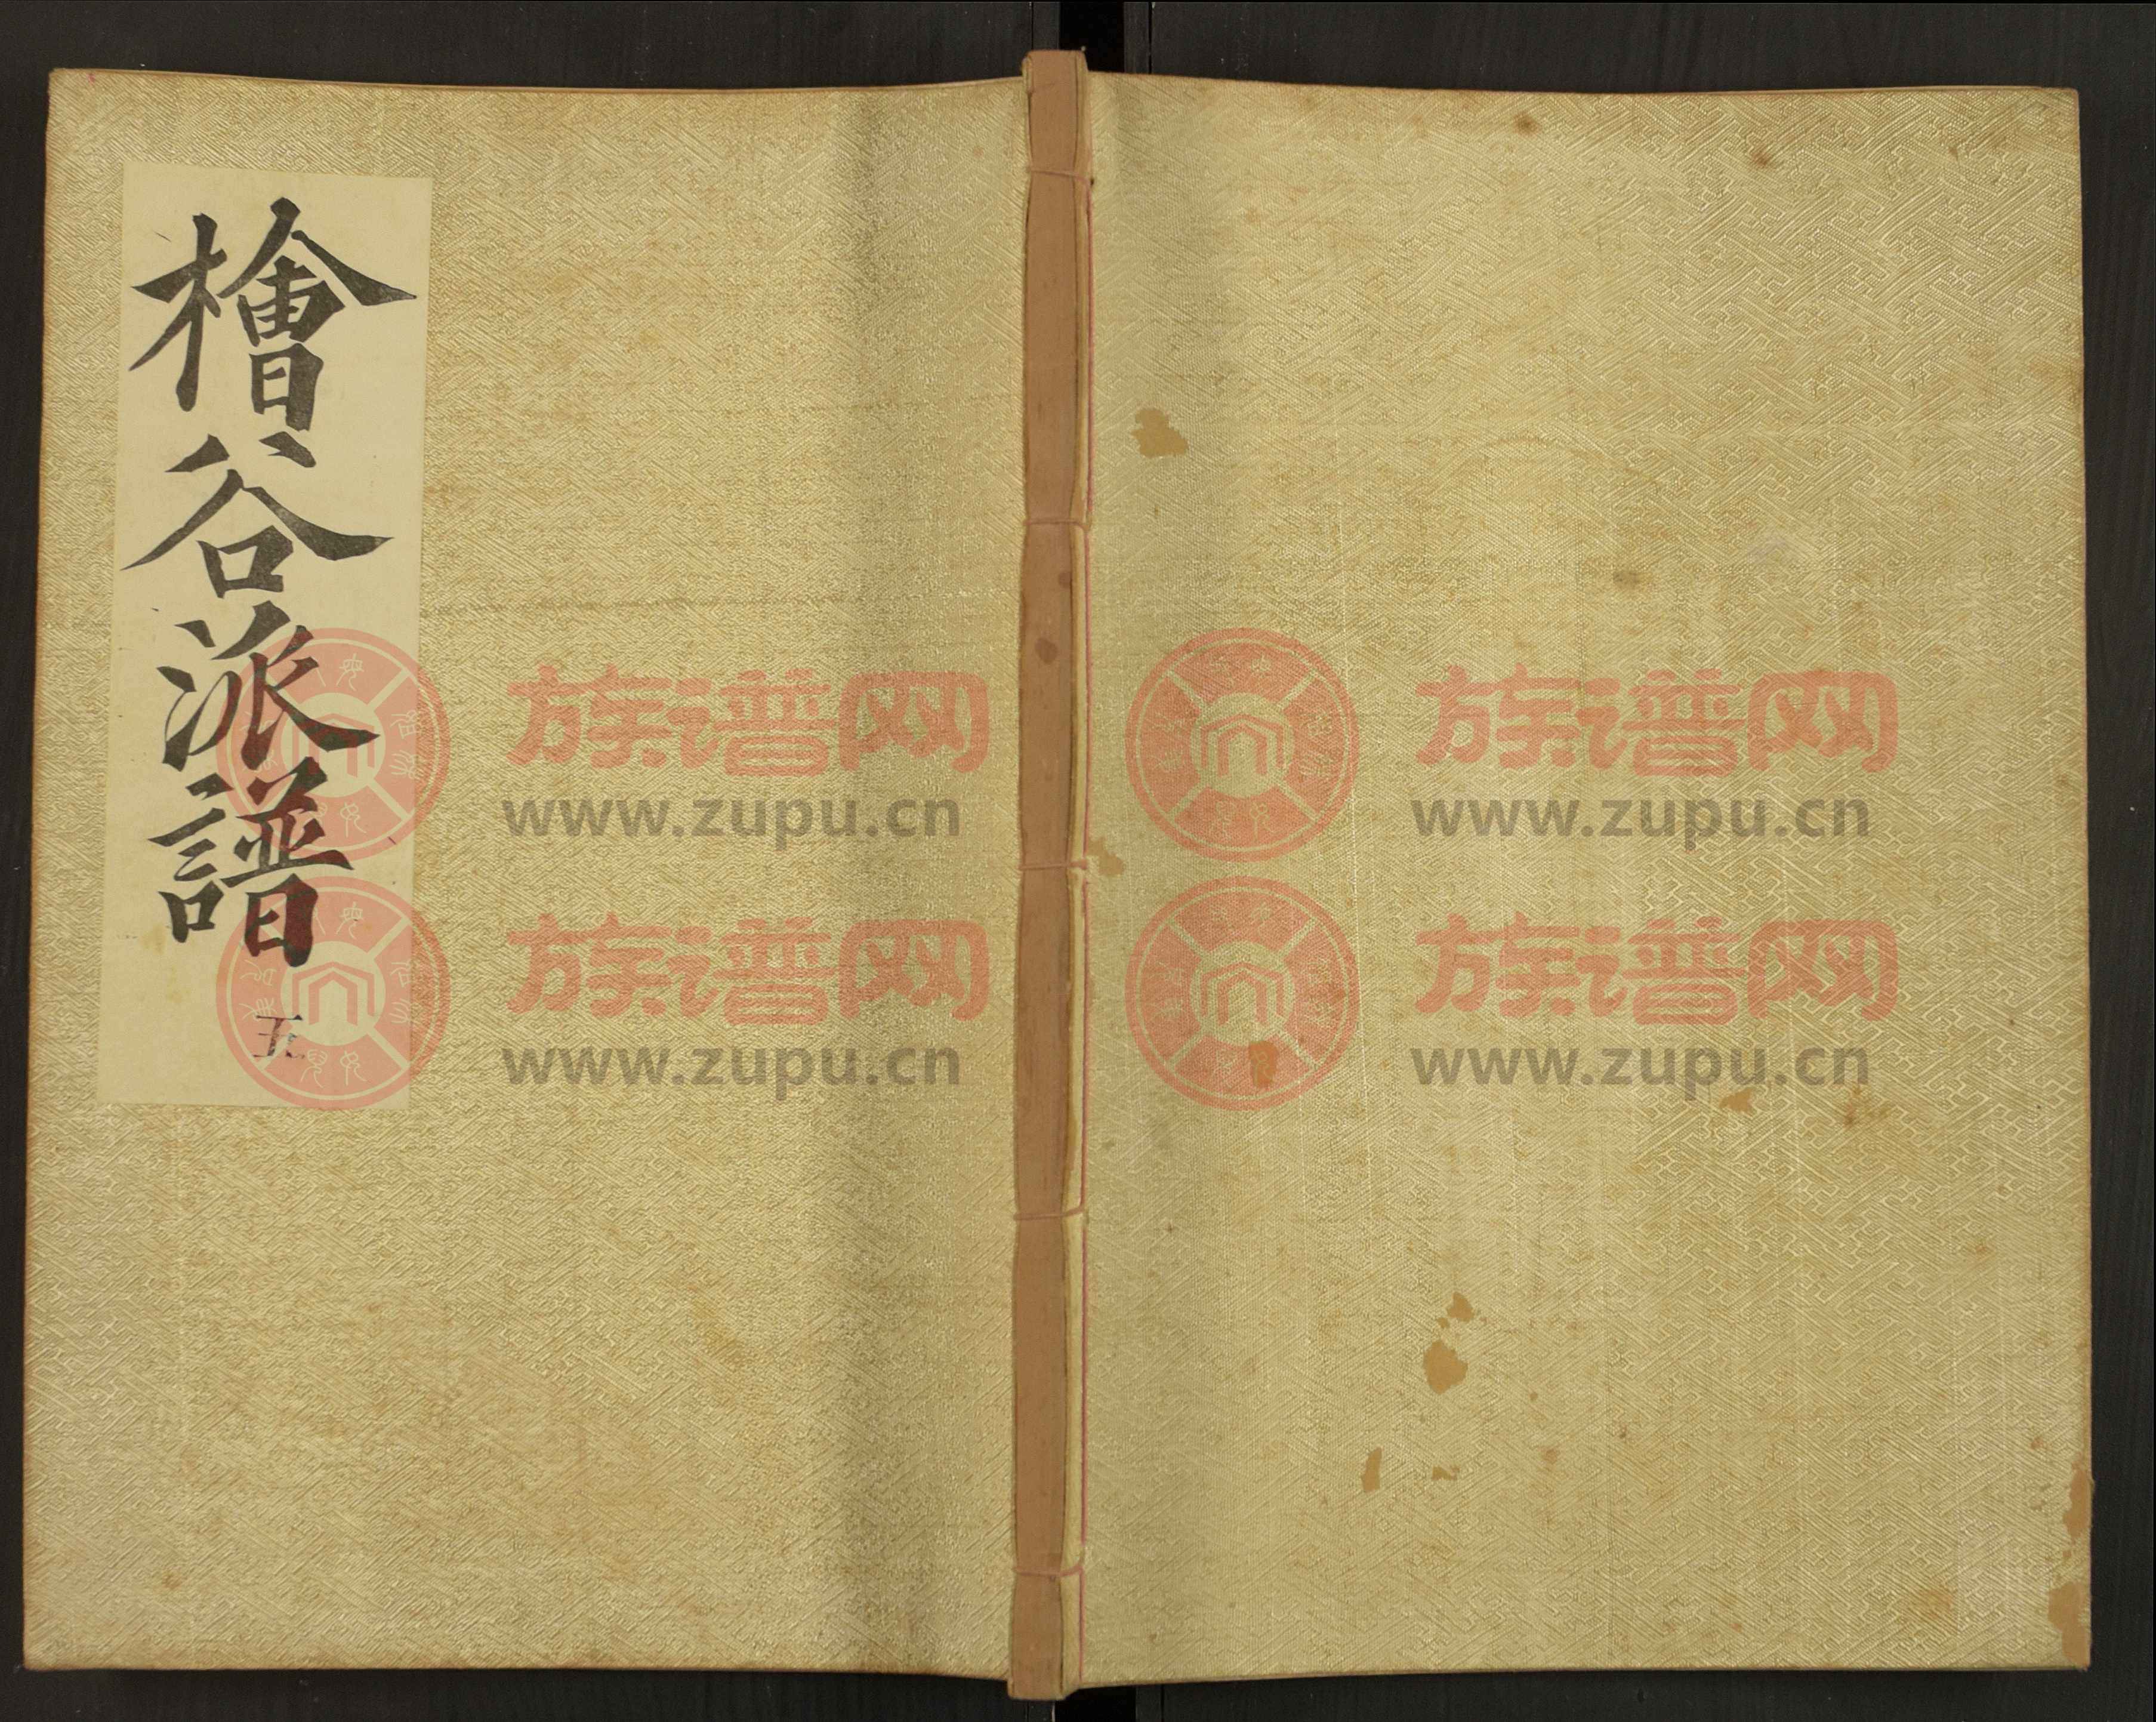 檜谷派譜
五
族谱网
www.zupu.cn
族谱网
www.zupu.cn
族谱网
www.zupu.cn
族谱网
www.zupu.cn